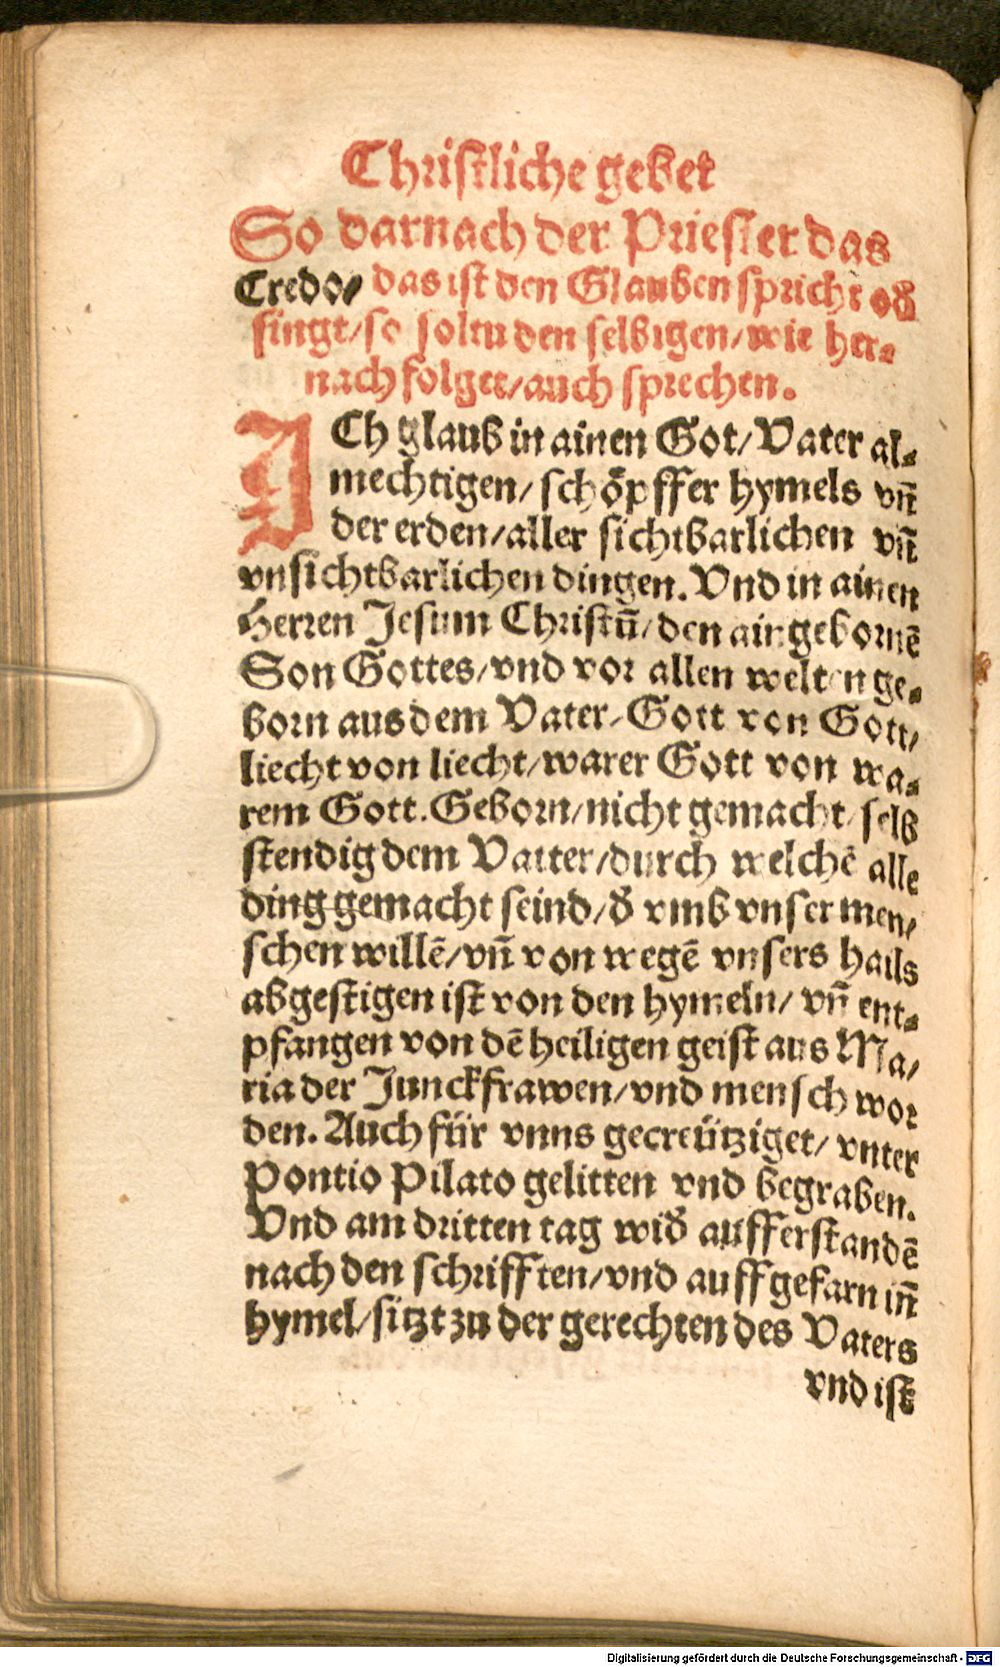 Christliche gebet
So darnach der Priester das
Credo/ das ist den Glauben spricht od̕
singt/ so soltu den selbigen/ wie her-
nach folget/ auch sprechen.
ICh glaub in ainen Got/ Vater al-
mechtigen/ schöpffer hymels vn̄
der erden/ aller sichtbarlichen vn̄
vnsichtbarlichen dingen. Vnd in ainen
Herren Jesum Christū/ den aingebornē
Son Gottes/ vnd vor allen welten ge-
born aus dem Vater/ Gott von Gott/
liecht von liecht/ warer Gott von wa-
rem Gott. Geborn/ nicht gemacht/ selb
stendig dem Vatter/ durch welchē alle
ding gemacht seind/ d̕ vmb vnser men/
schen willē/ vn̄ von wegē vnsers hails
abgestigen ist von den hymeln/ vn̄ ent-
pfangen von dē heiligen geist aus Ma/
ria der Junckfrawen/ vnd mensch wor
den. Auch für vnns gecreütziget/ vnter
Pontio Pilato gelitten vnd begraben.
Vnd am dritten tag wid̕ aufferstandē
nach den schrifften/ vnd auffgefarn in̄
hymel/ sitzt zu der gerechten des Vaters
vnd ist
Digitalisierung gefördert durch die Deutsche Forschungsgemeinschaft - DFG